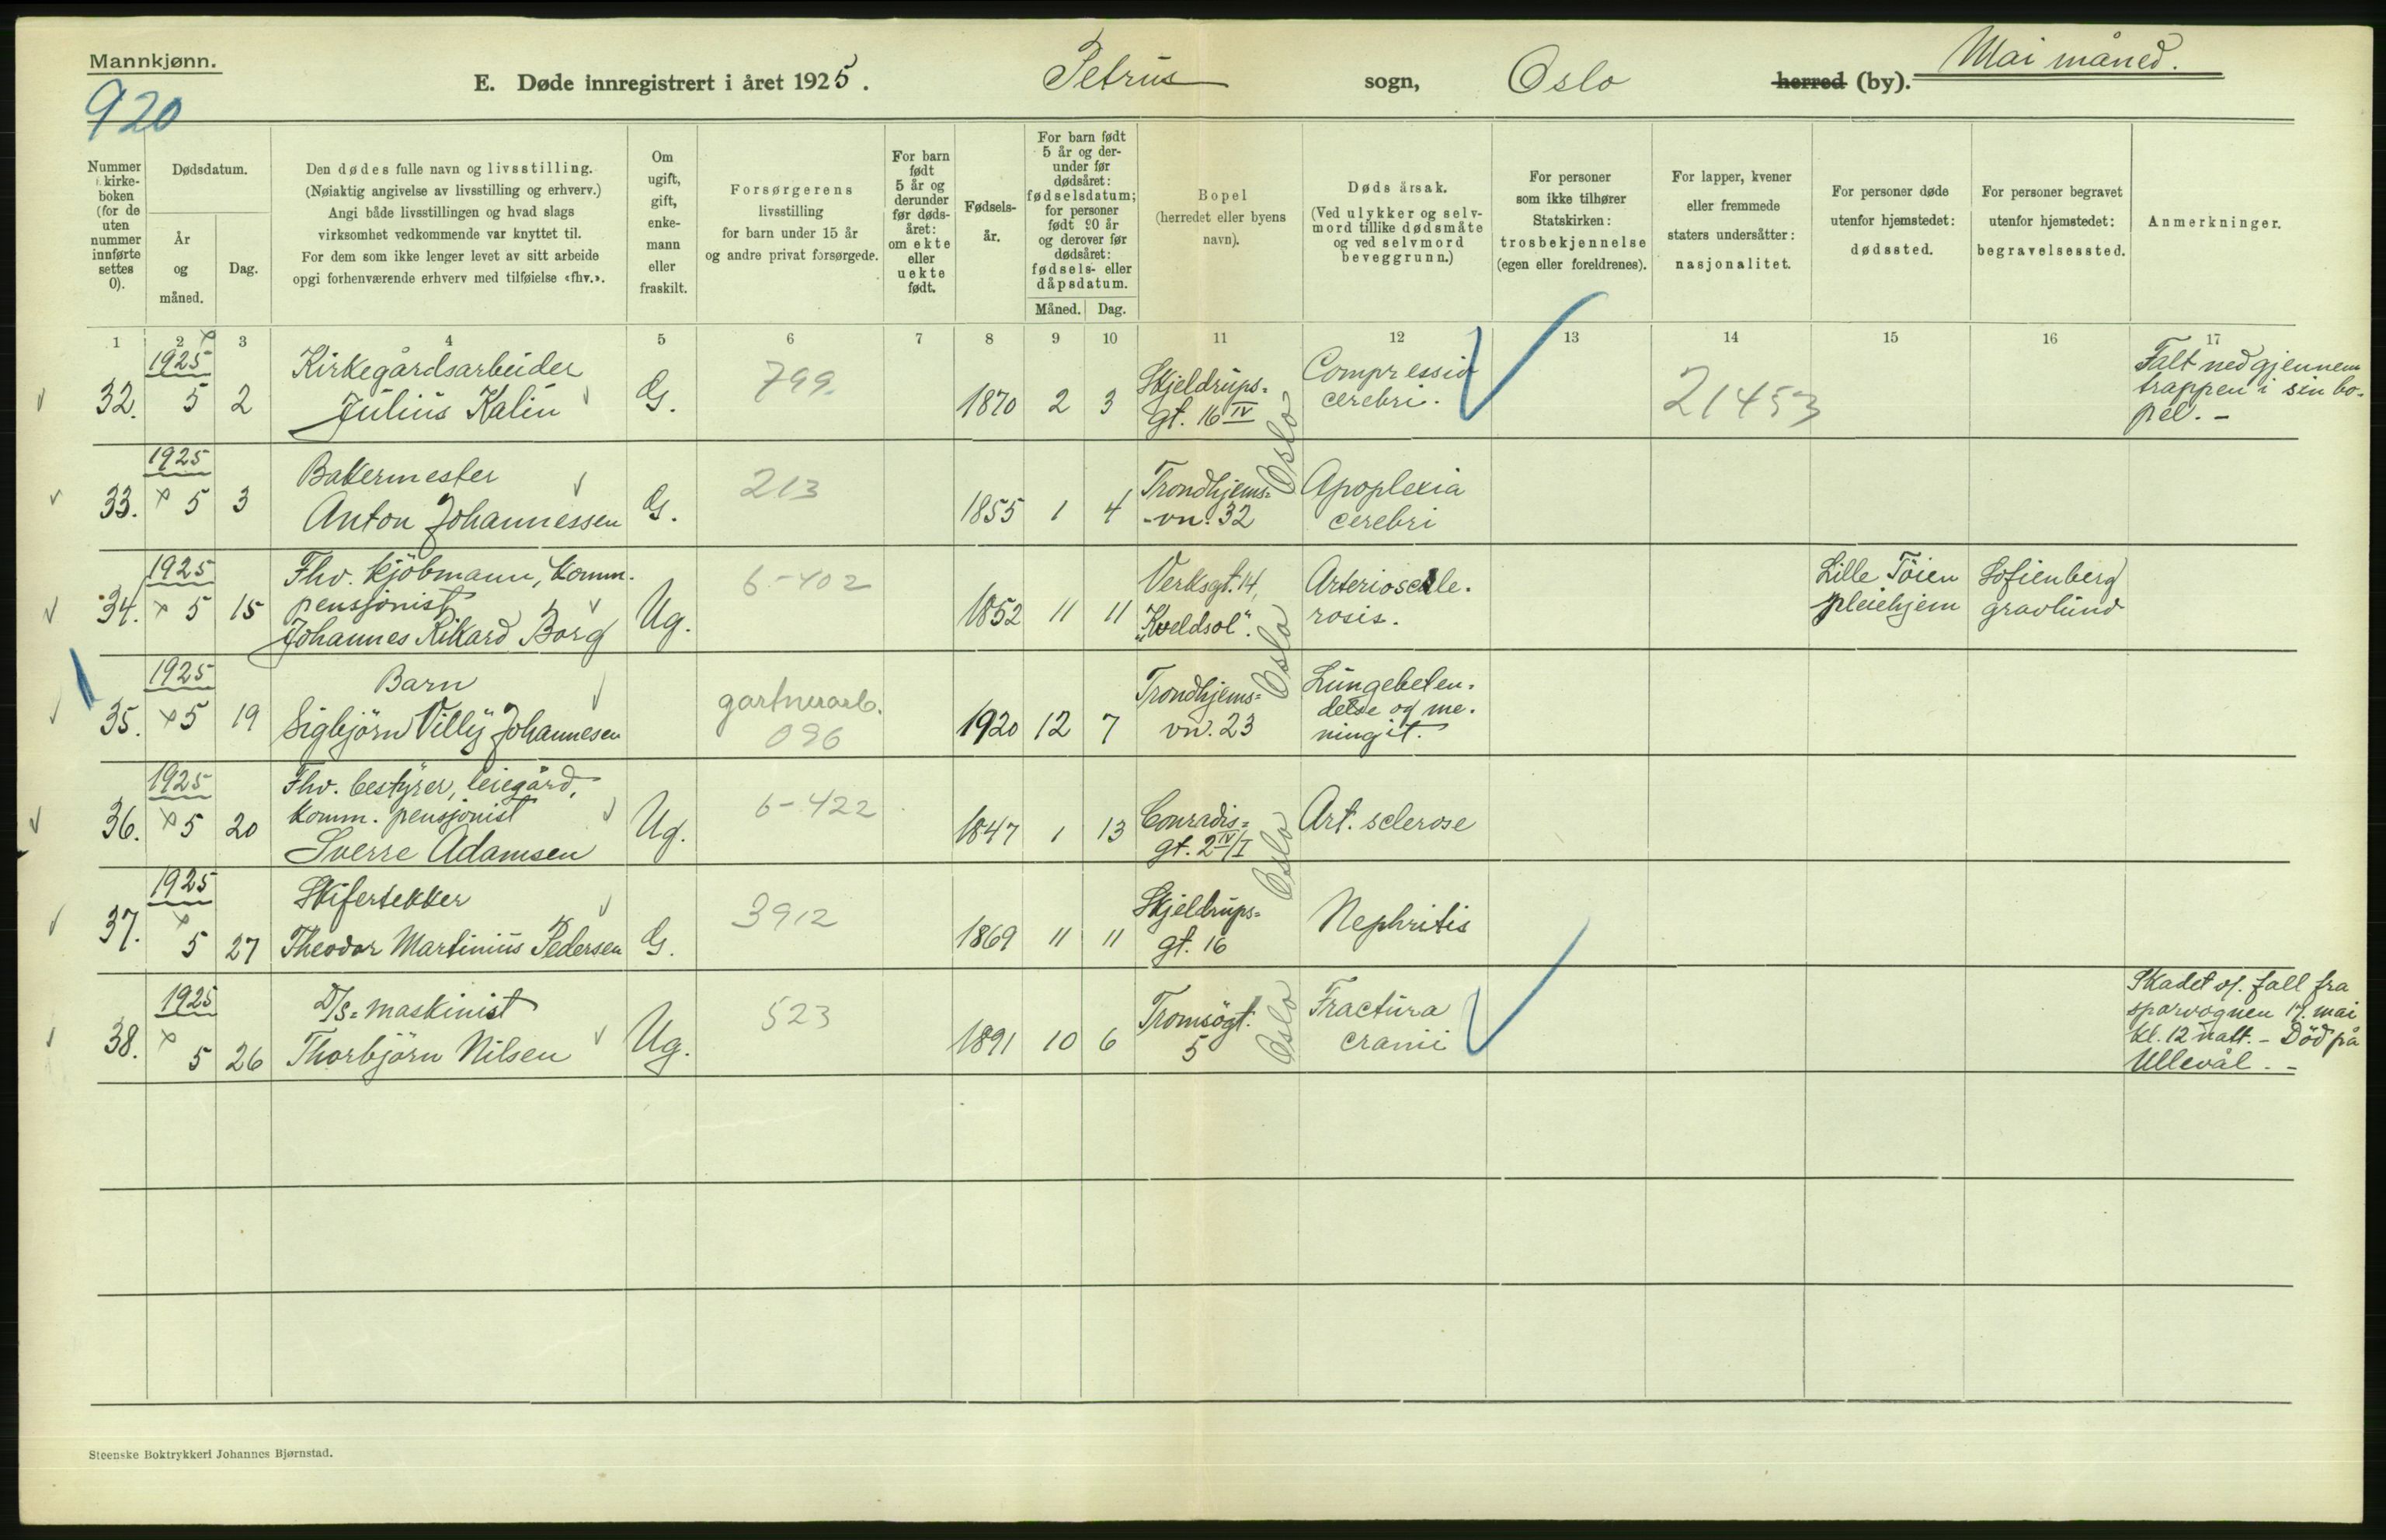 Mannkjønn.
920
E. Døde innregistrert i året 1925. Petrus sogn, Oslo herred (by). Mai måned.
Nummer i kirke-boken (for de uten nummer innførte settes 0).
Dødsdatum.
År og måned.
Dag.
Den dødes fulle navn og livsstilling.
(Nøiaktig angivelse av livsstilling og erhverv.)
Angi både livsstillingen og hvad slags
virksomhet vedkommende var knyttet til.
For dem som ikke lenger levet av sitt arbeide
opgi forhenværende erhverv med tilføielse «fhv.».
Om ugift, gift, enke-mann eller fraskilt.
Forsørgerens
livsstilling
for barn under 15 år
og andre privat forsørgede.
For barn født 5 år og derunder før døds-året: om ekte eller uekte født.
Fødsels-år.
For barn født 5 år og der-under før dødsåret: fødselsdatum; for personer født 90 år og derover før dødsåret: fødsels- eller dåpsdatum.
Måned. Dag.
Bopel
(herredet eller byens
navn).
Dødsårsak.
(Ved ulykker og selv-
mord tillike dødsmåte
og ved selvmord
beveggrunn.)
For personer
som ikke tilhører
Statskirken:
trosbekjennelse
(egen eller foreldrenes).
For lapper, kvener
eller fremmede
staters undersåtter:
nasjonalitet.
For personer døde
utenfor hjemstedet:
dødssted.
For personer begravet
utenfor hjemstedet:
begravelsessted.
Anmerkninger.
1 2 3 4 5 6 7 8 9 10 11 12 13 14 15 16 17
32. 1925 5 2 Kirkegårdsarbeider
Julius Kalin G. 799. 1870 2 3 Skjeldrups=
gt. 16 IV Oslo Compressio
cerebri. 21453 Falt ned gjennem
trappen i sin bo-
pel. -
33. 1925 5 3 Bakermester
Anton Johannessen G. 213 1855 1 4 Trondhjems=
-vn. 32 Apoplexia
cerebri
34. 1925 5 15 Fhv. kjöbmann, komm.
pensjonist
Johannes Rikard Borg Ug. 6-402 1852 11 11 Verksgt. 14,
"Kveldsol". Oslo Arterioscle-
rosis. Lille Töien
pleiehjem Sofienberg
gravlund
35. 1925 5 19 Barn
Sigbjörn Villy Johannesen gartnerarb.
096 1920 12 7 Trondhjems=
vn. 23 Lungebeten-
delse og me-
ningit.
36. 1925 5 20 Fhv. bestyrer, leiegård,
komm. pensjonist
Sverre Adamsen Ug. 6-422 1847 1 13 Conradis=
gt. 2 IV/I Oslo Art. sclerose
37. 1925 5 27 Skifertekker
Theodor Martinius Pedersen G. 3912 1869 11 11 Skjeldrups=
gt. 16 Nephritis
38. 1925 5 26 D/s=maskinist
Thorbjörn Nilsen Ug. 523 1891 10 6 Tromsögt.
5 Oslo Fractura
cranii Skadet v. fall fra
sporvognen 17. mai
kl. 12 natt. - Död på
Ullevål. -
Steenske Boktrykkeri Johannes Bjørnstad.